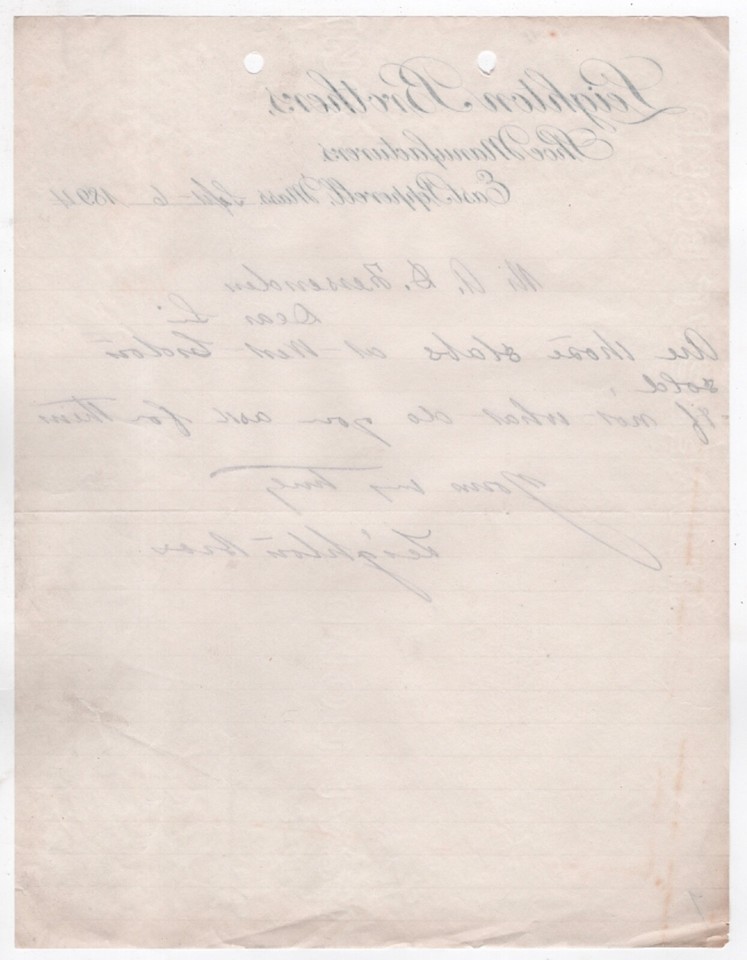 Leighton Brothers,
Shoe Manufacturers.
East Pepperell, Mass. Sept 6 1894
Mr. A. D. Fessenden
Dear Si
Are those slabs at West Groton
sold,
If not what do you ask for them
Yours very Truly
Leighton Bros